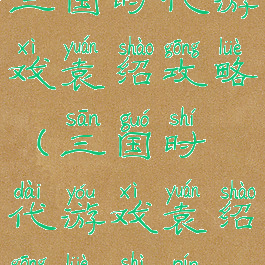 三国时代游
xì yuán shào gōng lüè
戏袁绍攻略
sān guó shí
（三国时
dài yóu xì yuán shào
代游戏袁绍
gōng lüè shì pín